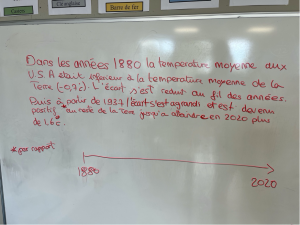 Barre de fer
Dans les années 1880 la temperature moyenne aux
U.S.A était inferieur à la temperature moyenne de la
Terre (-0,7c). L'écart s'est reduit au fil des années.
Puis à partir de 1937 l'écart s'est agrandi et est devenu
positif * au reste de la Terre jusqu'a atteindre en 2020 plus
de 1.6c.
*par rapport
1880
2020